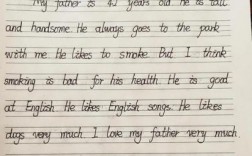 My father is 42 years old He is tall
and handsome. He always goes to the park
with me He likes to smoke. But I think
smoking is bad for his health. He is good
at English He likes English songs. He likes
dogs very much. I love my father very much.